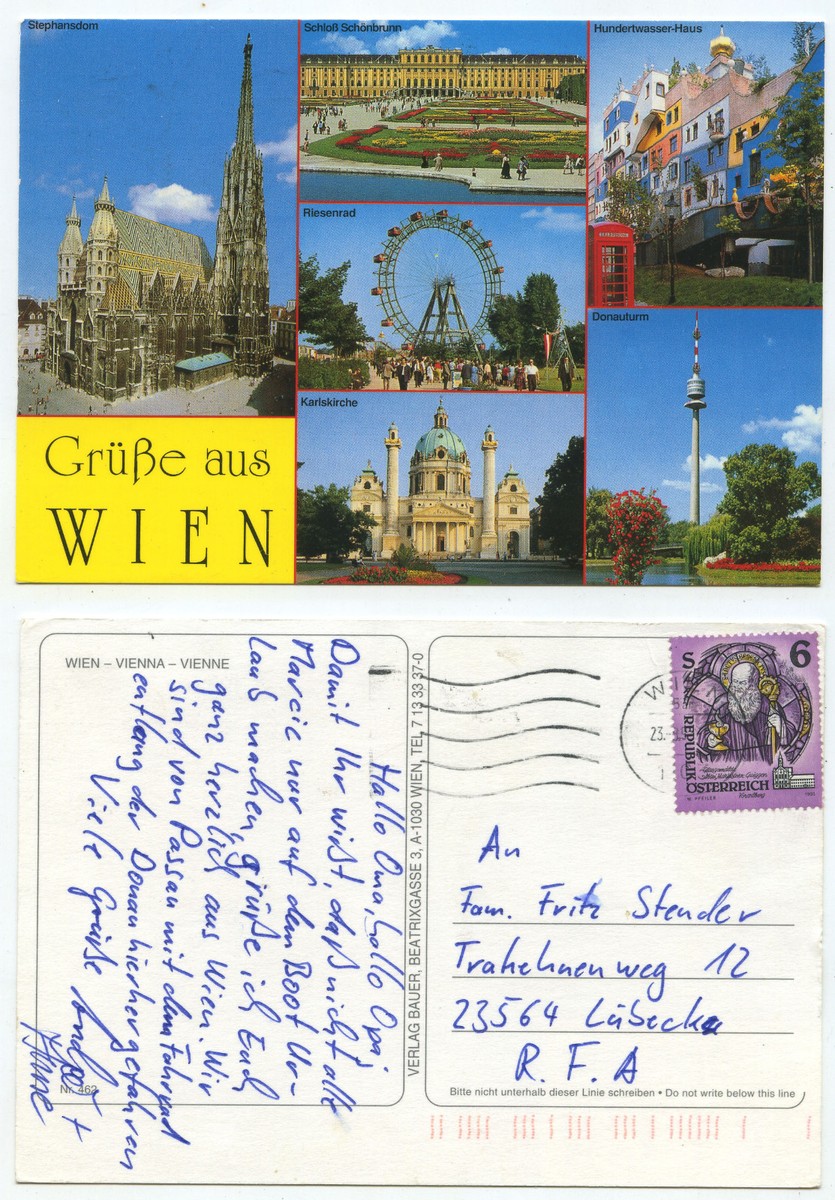 Stephansdom
Schloß Schönbrunn
Hundertwasser-Haus
Riesenrad
Donauturm
Karlskirche
Grüße aus
WIEN
WIEN – VIENNA – VIENNE
Hallo Oma, hallo Opa,
Damit Ihr wißt, daß nicht alle
Marcie nur auf dem Boot Ur-
laub machen, grüße ich Euch
ganz herzlich aus Wien. Wir
sind von Passau mit dem Fahrrad
entlang der Donau hierher gefahren
Viele Grüße
+
Anne
Nr. 462
VERLAG BAUER, BEATRIXGASSE 3, A-1030 WIEN, TEL. 7 13 33 37-0
S 6
REPUBLIK
ÖSTERREICH
W. PFEILER
23.
An
Fam. Fritz Stender
Trakehnenweg 12
23564 Lübeck
R. F. A
Bitte nicht unterhalb dieser Linie schreiben • Do not write below this line